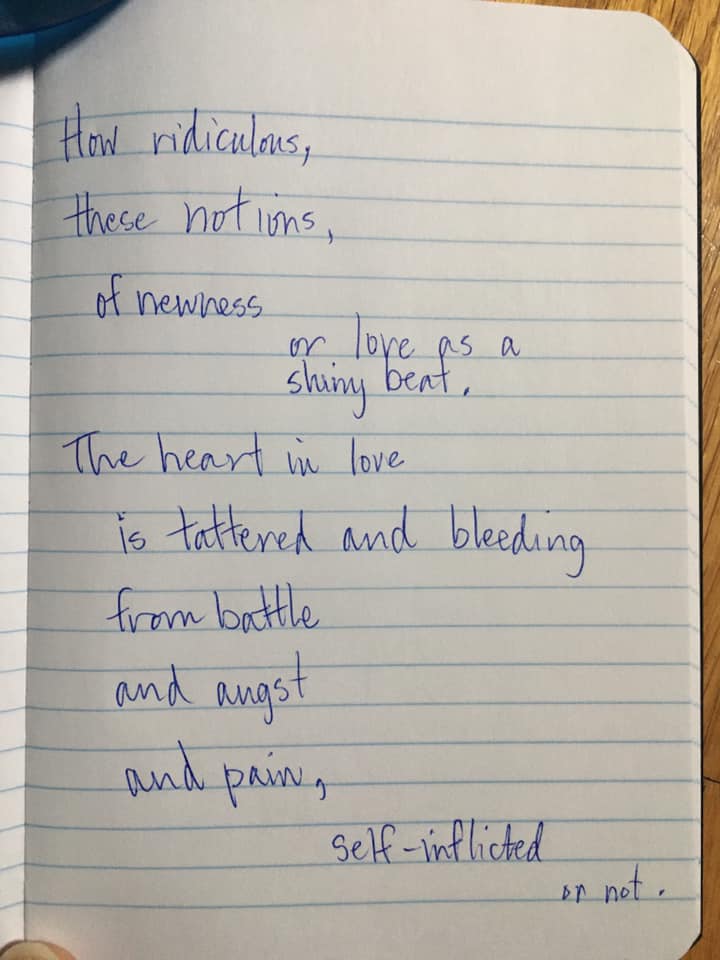 How ridiculous,
these notions,
of newness
or love as a
shiny beat.
The heart in love
is tattered and bleeding
from battle
and angst
and pain,
self-inflicted
or not.